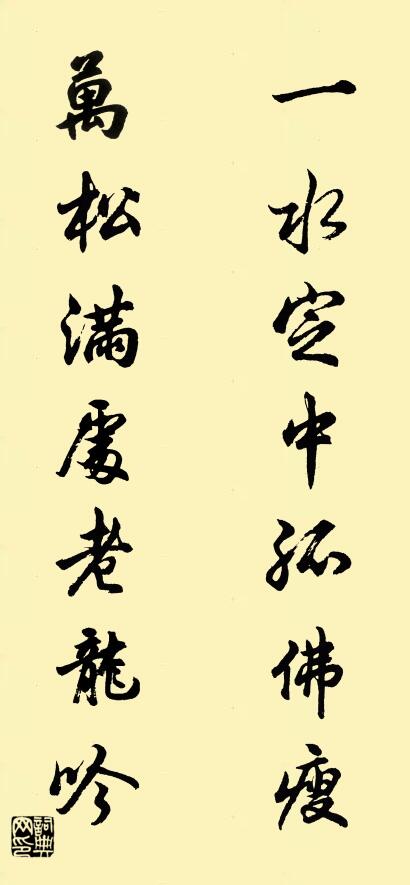 一水定中孤佛瘦
萬松滿處老龍吟
詞典網印